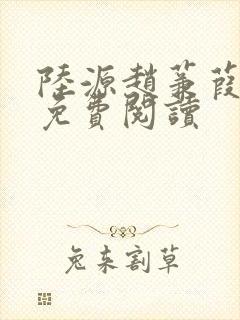 陸源趙蒹葭
免費閱讀
兔來割草